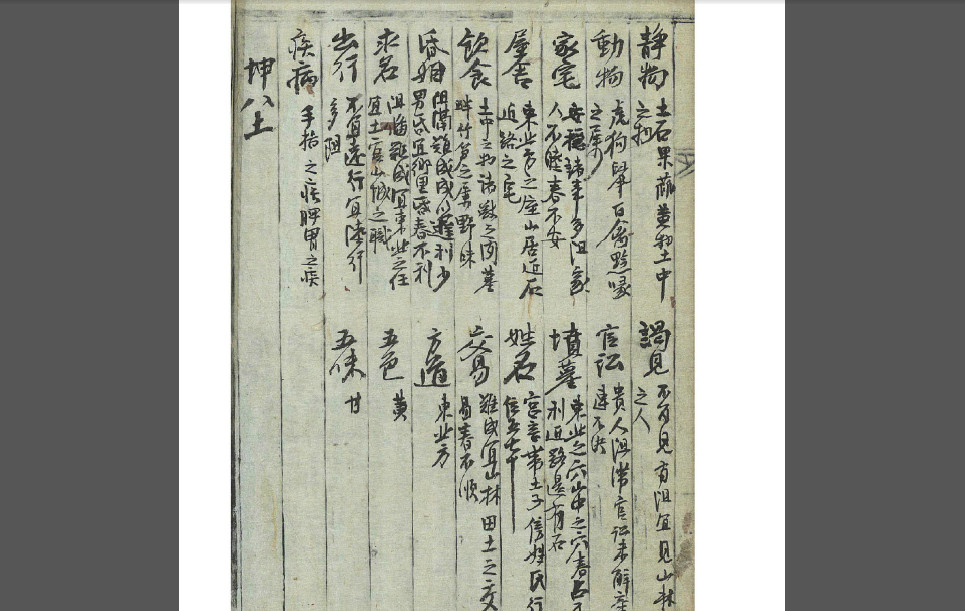 静物 土石果蓏黄物土中
之物
動物 虎狗鼠百禽黔喙
之属
家宅 安穩諸事多阻家
人不睦春不安
屋舍 東北方之座山居近石
近路之宅
飲食 土中之物諸獸之肉墓
畔竹笋之属野味
昏姻 阻隔難成成以遲利少
男昏宜鄉里昏春不利
求名 阻隔難成宜東北之任
宜土官山城之職
出行 不宜遠行宜陸行
多阻
疾病 手指之疾脾胃之疾
謁見 不可見有阻宜見山林
之人
官訟 貴人阻滯官訟未解牽
連不决
墳墓 東北之穴山中之穴春占不
利近路邊有石
姓名 宮音帶土子傍姓氏行
位五七十
交易 難成宜山林田土之交
易春不順
方道 東北方
五色 黄
五味 甘
坤八土